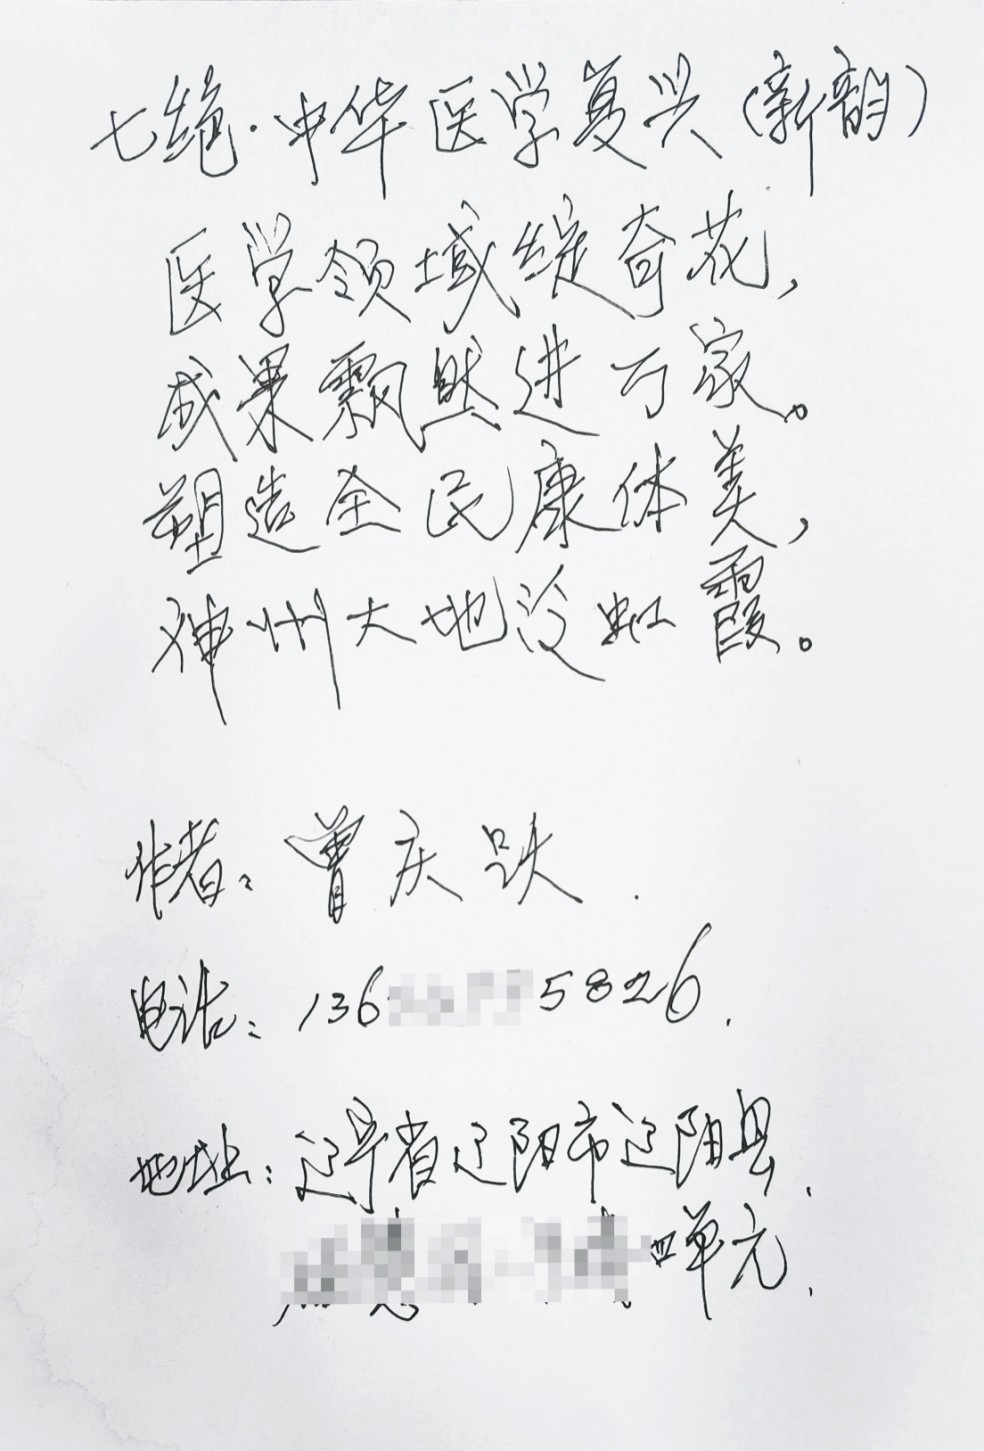 七绝·中华医学复兴(新韵)
医学领域绽奇花,
成果飘然进万家。
塑造全民康体美,
神州大地泛虹霞。
作者:曾庆跃.
电话:136 5826.
地址:辽宁省辽阳市辽阳县.
四单元.